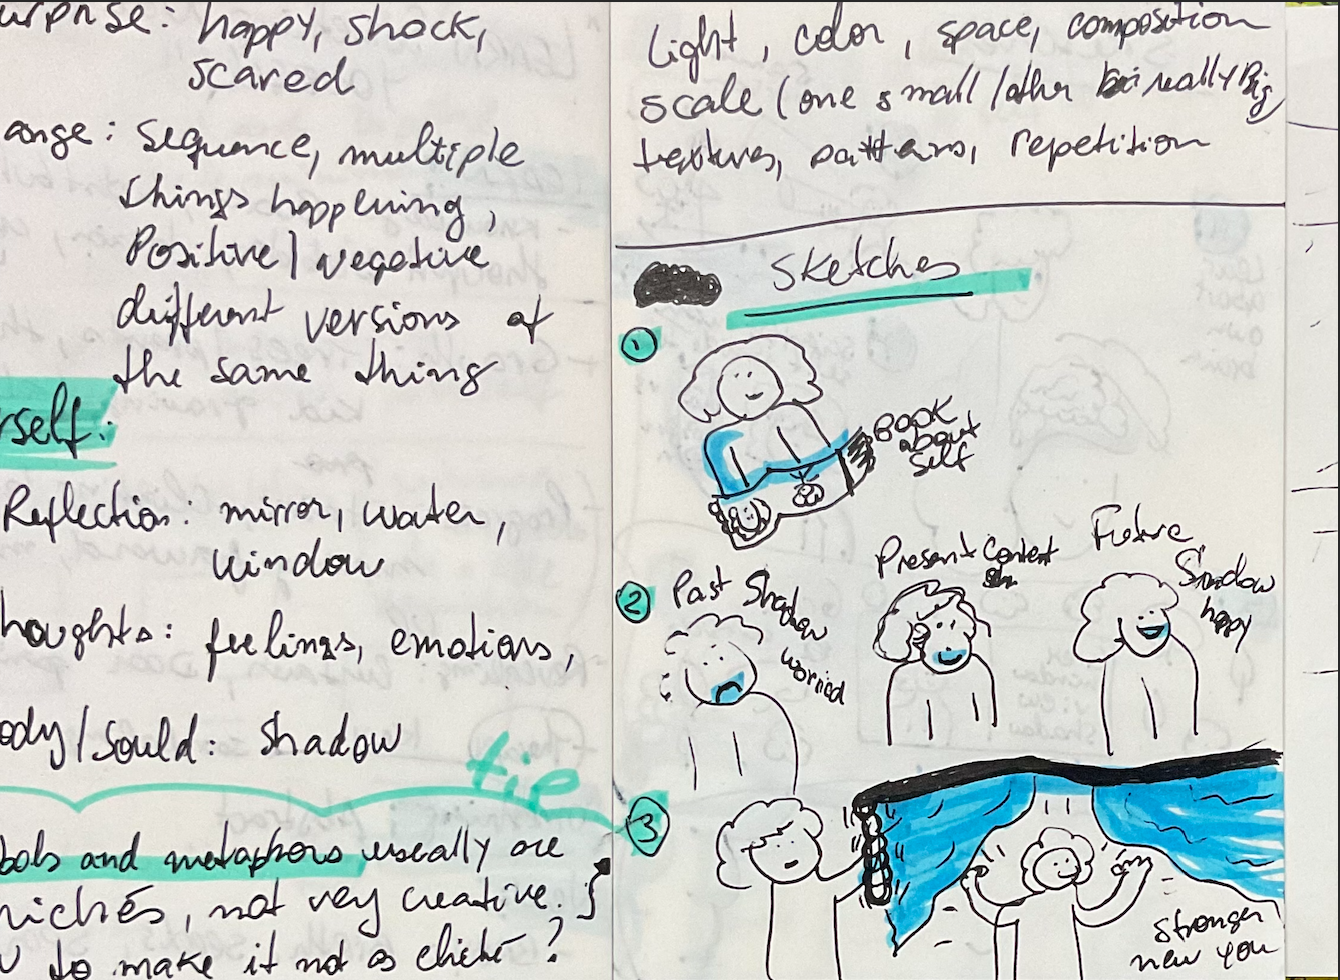 urprise: happy, shock,
scared
ange: sequance, multiple
things happening,
Positive/negative
different versions of
the same thing
rself:
Reflection: mirror, water,
window
houghts: feelings, emotions,
ody/Sould: shadow
tie
bols and metaphors usually are
lichés, not very creative.
to make it not as cliché?
light, color, space, composition
scale (one small/other really Big
textures, patterns, repetition
sketches
1
Book
about
self
2
Past Shadow
worried
Present Content
Future
Shadow
happy
3
Stronger
new you